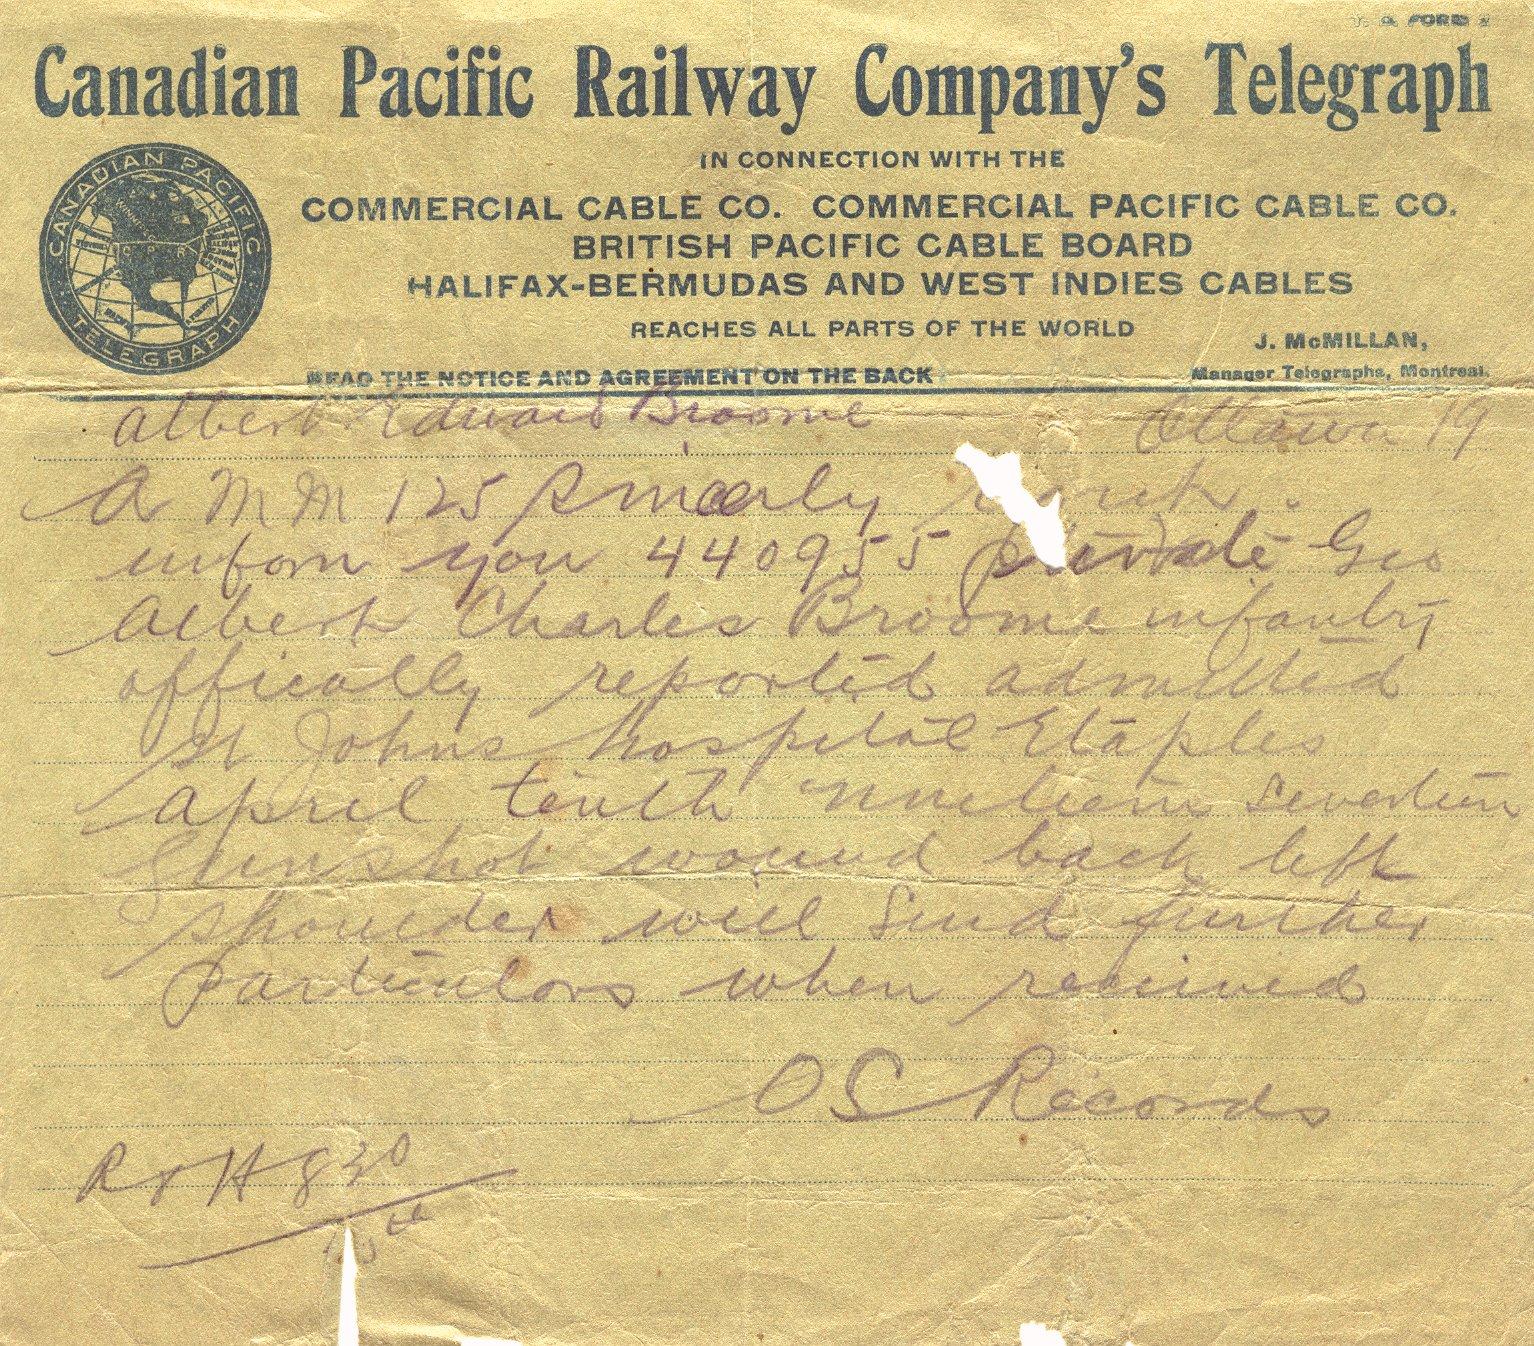 Canadian Pacific Railway Company's Telegraph
CANADIAN PACIFIC
TELEGRAPH
IN CONNECTION WITH THE
COMMERCIAL CABLE CO. COMMERCIAL PACIFIC CABLE CO.
BRITISH PACIFIC CABLE BOARD
HALIFAX-BERMUDAS AND WEST INDIES CABLES
REACHES ALL PARTS OF THE WORLD
J. McMILLAN,
READ THE NOTICE AND AGREEMENT ON THE BACK
Manager Telegraphs, Montreal.
Albert Edward Broome Ottawa 19
125 Sincerly
inform you 440955 private Geo
Albert Charles Broome infantry
offically reported admitted
St Johns hospital Etaples
April tenth nineteen seventeen
Gunshot wound back left
shoulder will send further
particulars when received
OS Records
R H 830